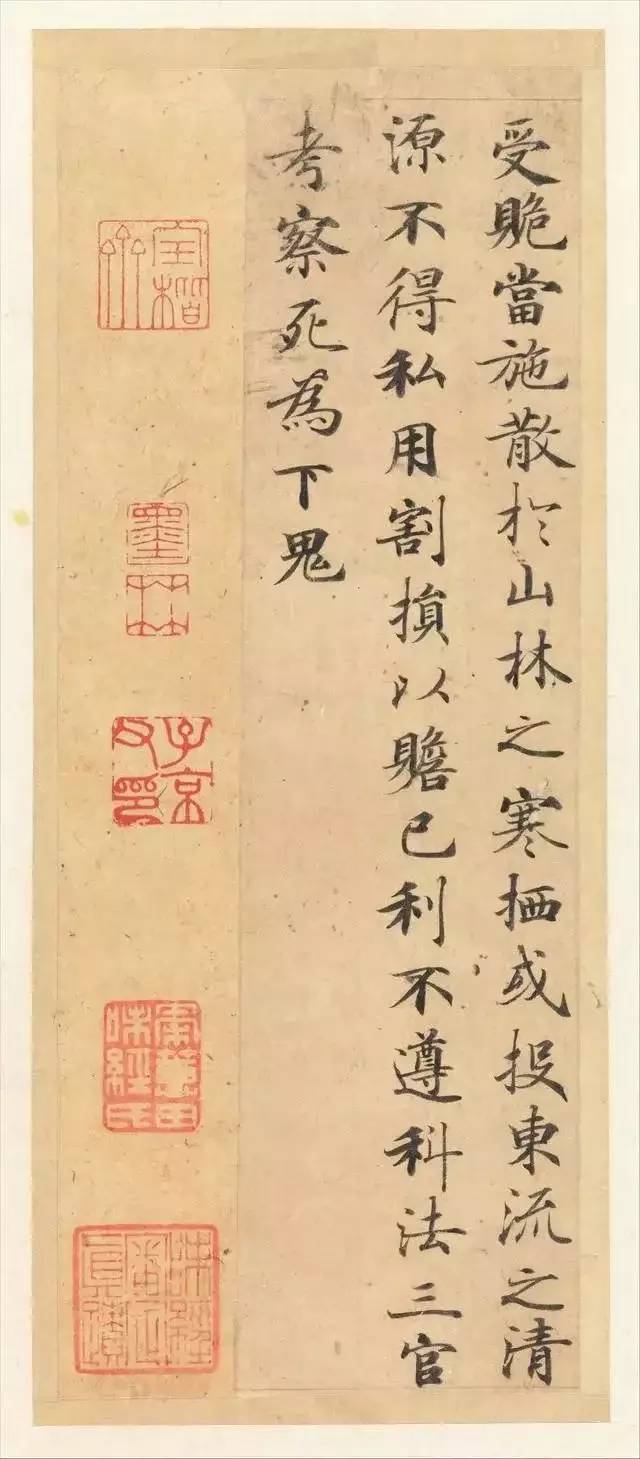 受賄當施散於山林之寒栖或投東流之清
源不得私用割損以贍己利不遵科法三官
考察死為下鬼
墨林
子京父印